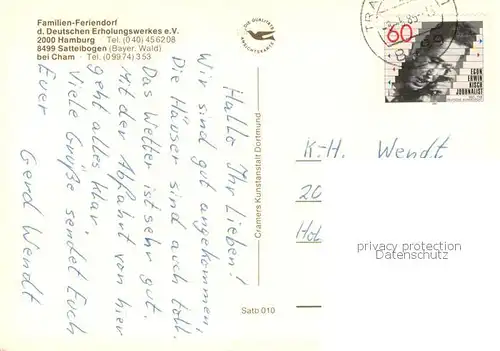 Familien-Feriendorf
d. Deutschen Erholungswerkes e.V.
2000 Hamburg · Tel. (040) 456208
8499 Sattelbogen (Bayer. Wald)
bei Cham · Tel. (09974) 353
DIE QUALITÄTS
ANSICHTSKARTE
Hallo Ihr Lieben!
Wir sind gut angekommen,
Die Häuser sind auch toll.
Das Wetter ist sehr gut.
Mit der Abfahrt von hier
geht alles klar.
Viele Grüße sendet Euch
Euer Gerd Wendt
Cramers Kunstanstalt Dortmund
Satb 010
60
EGON
ERWIN
KISCH
JOURNALIST
K.-H. Wendt
20
privacy protection
Datenschutz